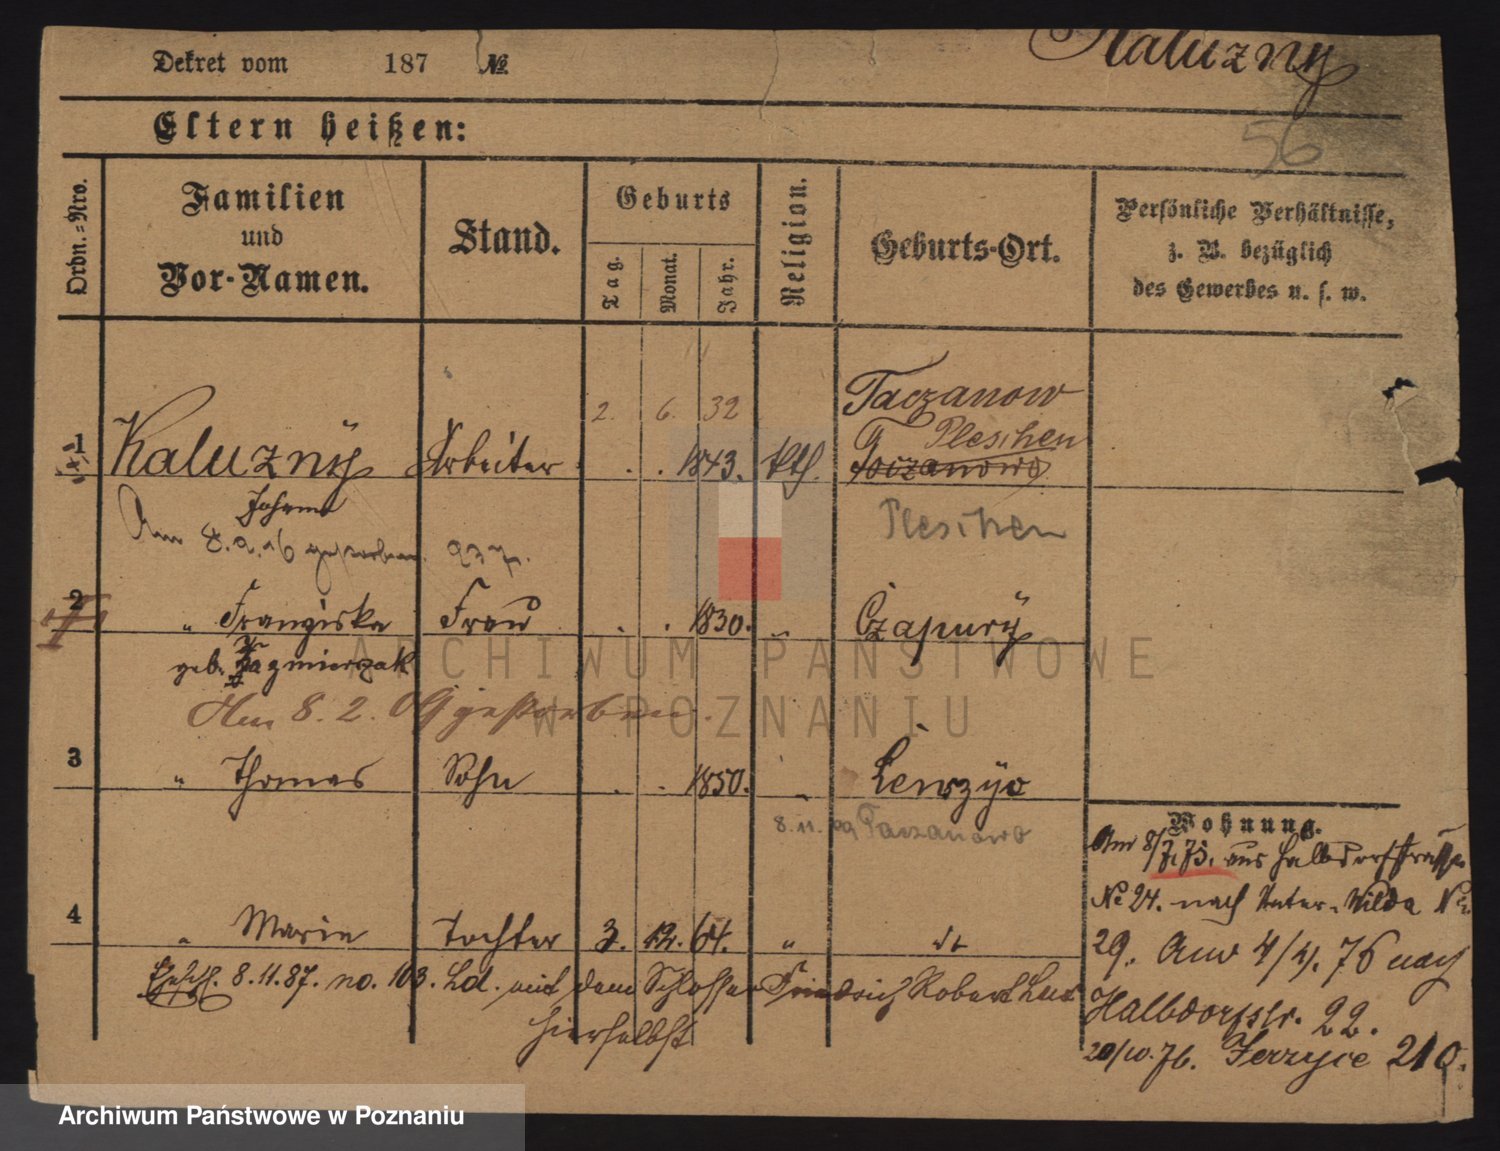 Dekret vom 187 №
Kaluzny
56
Eltern heißen:
Ordn.=Nro.
Familien
und
Vor-Namen.
Stand.
Geburts
Tag.
Monat.
Jahr.
Religion.
Geburts-Ort.
Persönliche Verhältnisse,
z. B. bezüglich
des Gewerbes u. s. w.
2. 6. 32 Taczanow
Pleschen
1 Kaluzny Arbeiter . . 1843. kth. Toczanowo
Johann Pleschen
Am 8.9.16 gestorben.
2 " Franziska Frau . . 1830. " Czapury
geb. Kazmierczak
Am 8. 2. 09 gestorben.
3 " Thomas Sohn . . 1850. "
8. 11. 99 Taczanowo
Wohnung.
Am 8/7.75. aus Halbdorfstrasse
№ 24. nach Unter-Wilda №
4 " Marie Tochter 3. 12. 64. " dt
29. Am 4/4. 76 nach
Ehesch. 8.11.87. no. 103. Ld. mit dem Schlosser Friedrich Robert
hierselbst
Halbdorfstr. 22.
20/10.76. Jerzyce 210.
ARCHIWUM PAŃSTWOWE
W POZNANIU
Archiwum Państwowe w Poznaniu